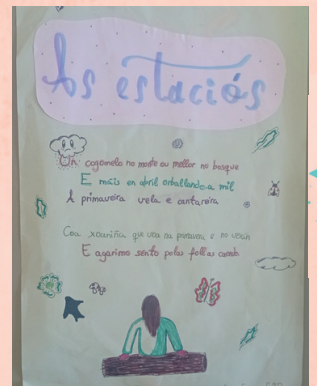 As estaciós
Un cogomelo no monte ou mellor no bosque
E máis en abril orballando a mil
A primavera vela e cantareira
Coa xouriña que vexo na primavera e no verán
E agarimo sento polas follas